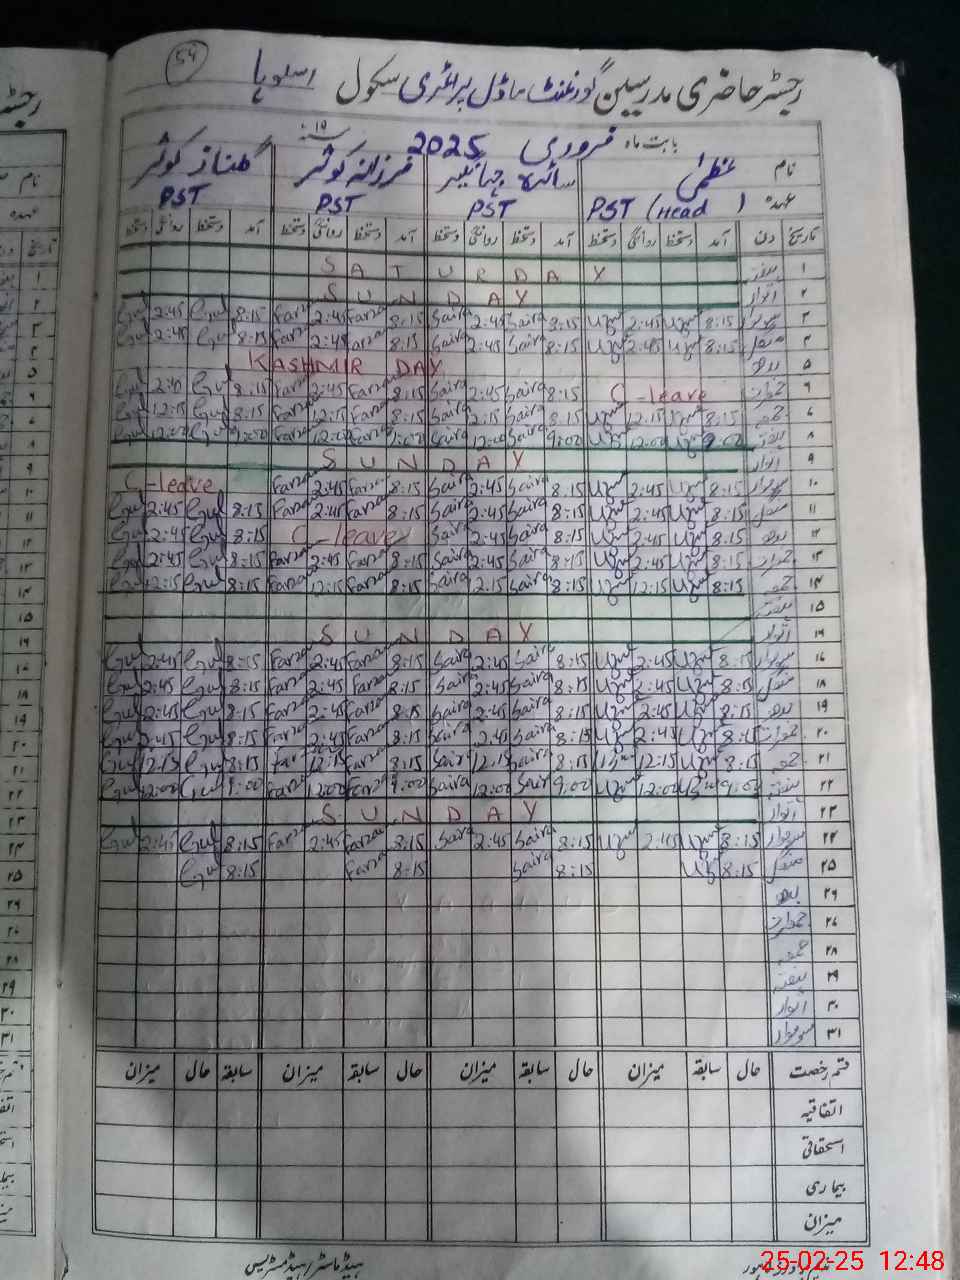 54
رجسٹر حاضری مدرسین گورنمنٹ ماڈل پرائمری سکول اسلوہا
بابت ماہ فروری 2025
نام عظمیٰ سائرہ جہانگیر فرزانہ کوثر گلناز کوثر
عہدہ PST (Head) PST PST PST
تاریخ دن آمد دستخط روانگی دستخط آمد دستخط روانگی دستخط آمد دستخط روانگی دستخط آمد دستخط روانگی دستخط
۱ ہفتہ SATURDAY
۲ اتوار SUNDAY
۳ سوموار 8:15 Uzm 2:45 Uzm 8:15 Saira 2:45 Saira 8:15 Farza 2:45 Farza 8:15 Gul 2:45 Gul
۴ منگل 8:15 Uzm 2:45 Uzm 8:15 Saira 2:45 Saira 8:15 Farza 2:45 Farza 8:15 Gul 2:45 Gul
۵ بدھ KASHMIR DAY
۶ جمعرات C-leave 8:15 Saira 2:45 Saira 8:15 Farza 2:45 Farza 8:15 Gul Gul
۷ جمعہ 8:15 Uzm 12:15 Uzm 8:15 Saira Saira 8:15 Farza 12:15 Farza 8:15 Gul 12:15 Gul
۸ ہفتہ 9:00 Uzm 12:00 Uzm 9:00 Saira 12:00 Saira 9:00 Farza 12:00 Farza 9:00 Gul 12:00 Gul
۹ اتوار SUNDAY
۱۰ سوموار 8:15 Uzm 2:45 Uzm 8:15 Saira 2:45 Saira 8:15 Farza 2:45 Farza C-leave
۱۱ منگل 8:15 Uzm 2:45 Uzm 8:15 Saira 2:45 Saira 8:15 Farza 2:45 Farza 8:15 Gul 2:45 Gul
۱۲ بدھ 8:15 Uzm 2:45 Uzm 8:15 Saira 2:45 Saira C-leave 8:15 Gul 2:45 Gul
۱۳ جمعرات 8:15 Uzm 2:45 Uzm 8:15 Saira 2:45 Saira 8:15 Farza 2:45 Farza 8:15 Gul 2:45 Gul
۱۴ جمعہ 8:15 Uzm 12:15 Uzm 8:15 Saira 2:15 Saira 8:15 Farza 12:15 Farza 8:15 Gul 12:15 Gul
۱۵ ہفتہ
۱۶ اتوار SUNDAY
۱۷ سوموار 8:15 Uzm 2:45 Uzm 8:15 Saira 2:45 Saira 8:15 Farza 2:45 Farza 8:15 Gul 2:45 Gul
۱۸ منگل 8:15 Uzm 2:45 Uzm 8:15 Saira 2:45 Saira 8:15 Farza 2:45 Farza 8:15 Gul 2:45 Gul
۱۹ بدھ 8:15 Uzm 2:45 Uzm 8:15 Saira 2:45 Saira 8:15 Farza 2:45 Farza 8:15 Gul 2:45 Gul
۲۰ جمعرات 8:15 Uzm 2:45 Uzm 8:15 Saira 2:45 Saira 8:15 Farza 2:45 Farza 8:15 Gul 2:45 Gul
۲۱ جمعہ 8:15 Uzm 12:15 Uzm 8:15 Saira 12:15 Saira 8:15 Farza 12:15 Far 8:15 Gul 12:15 Gul
۲۲ ہفتہ 9:00 Uzm 12:00 Uzm 9:00 Saira 12:00 Saira 9:00 Farza 12:00 Farza 9:00 Gul 12:00 Gul
۲۳ اتوار SUNDAY
۲۴ سوموار 8:15 Uzm 2:45 Uzm 8:15 Saira 2:45 Saira 8:15 Farza 2:45 Far 8:15 Gul 2:45 Gul
۲۵ منگل 8:15 Uzm 8:15 Saira 8:15 Farza 8:15 Gul
۲۶ بدھ
۲۷ جمعرات
۲۸ جمعہ
۲۹ ہفتہ
۳۰ اتوار
۳۱ سوموار
قسم رخصت حال سابقہ میزان حال سابقہ میزان حال سابقہ میزان سابقہ حال میزان
اتفاقیہ
استحقاقی
بیماری
میزان
ہیڈ ماسٹر/ہیڈ مسٹریس
25-02-25 12:48